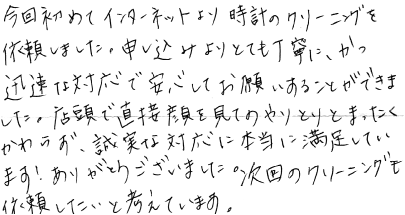 今回初めてインターネットより時計のクリーニングを
依頼しました。申し込みよりとても丁寧に、かつ
迅速な対応で安心してお願いすることができま
した。店頭で直接顔を見てのやりとりとまったく
かわらず、誠実な対応に本当に満足してい
ます！ありがとうございました。次回のクリーニングも
依頼したいと考えています。